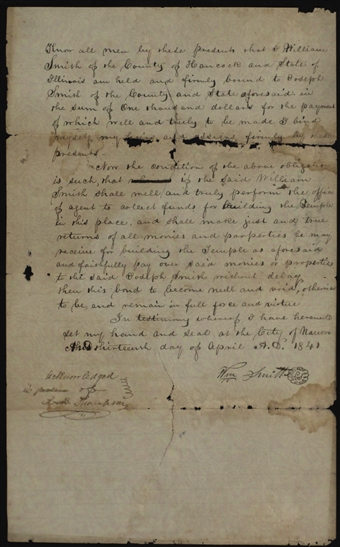 Know all men by these presents that I William
Smith of the County of Hancock and State of
Illinois am held and firmly bound to Joseph
Smith of the County and State aforesaid in
the sum of One thousand dollars for the payment
of which well and truly to be made I bind
myself my heirs and assigns firmly by these
presents.
Now the condition of the above obligation
is such that if the said William
Smith shall well and truly perform the office
of agent to collect funds for building the Temple
in this place, and shall make just and true
returns of all monies and properties he may
receive for building the Temple as aforesaid
and faithfully pay over said monies or properties
to the said Joseph Smith without delay
then this bond to become null and void, otherwise
to be and remain in full force and virtue
In testimony whereof I have hereunto
set my hand and seal at the City of Nauvoo
day of April A.D. 1841
Wm Smith
in presence of
Thompson